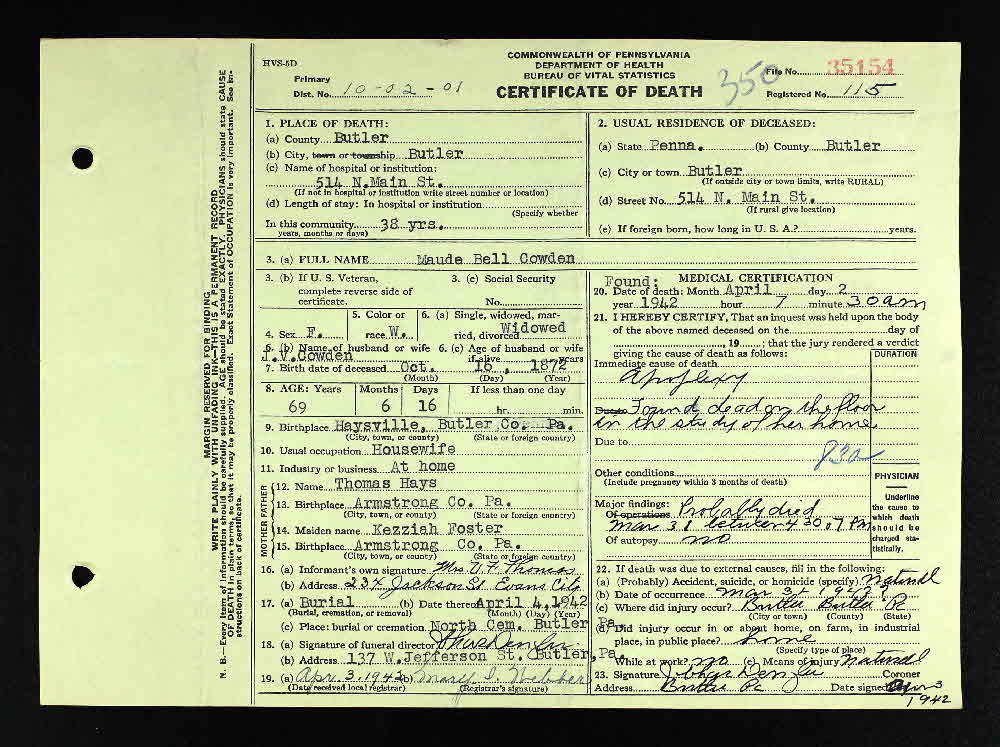 HVS-5D
COMMONWEALTH OF PENNSYLVANIA
DEPARTMENT OF HEALTH
BUREAU OF VITAL STATISTICS
CERTIFICATE OF DEATH
Primary
Dist. No. 10-02-01
350
File No. 35154
Registered No. 115
MARGIN RESERVED FOR BINDING
WRITE PLAINLY WITH UNFADING INK—THIS IS A PERMANENT RECORD
N. B.—Every item of information should be carefully supplied. AGE should be stated EXACTLY. PHYSICIANS should state CAUSE
OF DEATH in plain terms, so that it may be properly classified. Exact Statement of OCCUPATION is very important. See in-
structions on back of certificate.
1. PLACE OF DEATH:
(a) County Butler
(b) City, town or township Butler
(c) Name of hospital or institution:
514 N.Main St.
(If not in hospital or institution write street number or location)
(d) Length of stay: In hospital or institution
(Specify whether
In this community 38 yrs.
years, months or days)
2. USUAL RESIDENCE OF DECEASED:
(a) State Penna. (b) County Butler
(c) City or town Butler
(If outside city or town limits, write RURAL)
(d) Street No. 514 N. Main St.
(If rural give location)
(e) If foreign born, how long in U. S. A.? years.
3. (a) FULL NAME Maude Bell Cowden
3. (b) If U. S. Veteran,
complete reverse side of
certificate.
3. (c) Social Security
No.
4. Sex F.
5. Color or
race W.
6. (a) Single, widowed, mar-
ried, divorced Widowed
6. (b) Name of husband or wife
J.V.Cowden
6. (c) Age of husband or wife
if alive years
7. Birth date of deceased Oct. 16, 1872
(Month) (Day) (Year)
8. AGE: Years Months Days If less than one day
69 6 16 hr. min.
9. Birthplace Haysville, Butler Co. Pa.
(City, town, or county) (State or foreign country)
10. Usual occupation Housewife
11. Industry or business At home
FATHER
12. Name Thomas Hays
13. Birthplace Armstrong Co. Pa.
(City, town, or county) (State or foreign country)
MOTHER
14. Maiden name Kezziah Foster
15. Birthplace Armstrong Co. Pa.
(City, town, or county) (State or foreign country)
16. (a) Informant's own signature Mrs Thomas
(b) Address Jackson St. Evans City
17. (a) Burial (b) Date thereof April 4, 1942
(Burial, cremation, or removal) (Month) (Day) (Year)
(c) Place: burial or cremation North Cem. Butler Pa.
18. (a) Signature of funeral director
(b) Address 137 W.Jefferson St. Butler, Pa.
19. (a) Apr. 3, 1942 (b) Mary
(Date received local registrar) (Registrar's signature)
MEDICAL CERTIFICATION
Found:
20. Date of death: Month April day 2
year 1942 hour 1 minute 30 am
21. I HEREBY CERTIFY, That an inquest was held upon the body
of the above named deceased on the day of
, 19 ; that the jury rendered a verdict
giving the cause of death as follows:
DURATION
Immediate cause of death
Apoplexy
Due to Found dead on the floor
in the study of her home
Due to
83a
Other conditions
(Include pregnancy within 3 months of death)
PHYSICIAN
Underline
the cause to
which death
should be
charged sta-
tistically.
Major findings: Probably died
Of operations Mar 31 between 4 30 & 7 PM
Of autopsy no
22. If death was due to external causes, fill in the following:
(a) (Probably) Accident, suicide, or homicide (specify) natural
(b) Date of occurrence Mar 31 1942
(c) Where did injury occur? Butler Butler Pa
(City or town) (County) (State)
(d) Did injury occur in or about home, on farm, in industrial
place, in public place? home
(Specify type of place)
While at work? no (e) Means of injury natural
23. Signature Coroner
Address Butler Pa Date signed Apr 3
1942